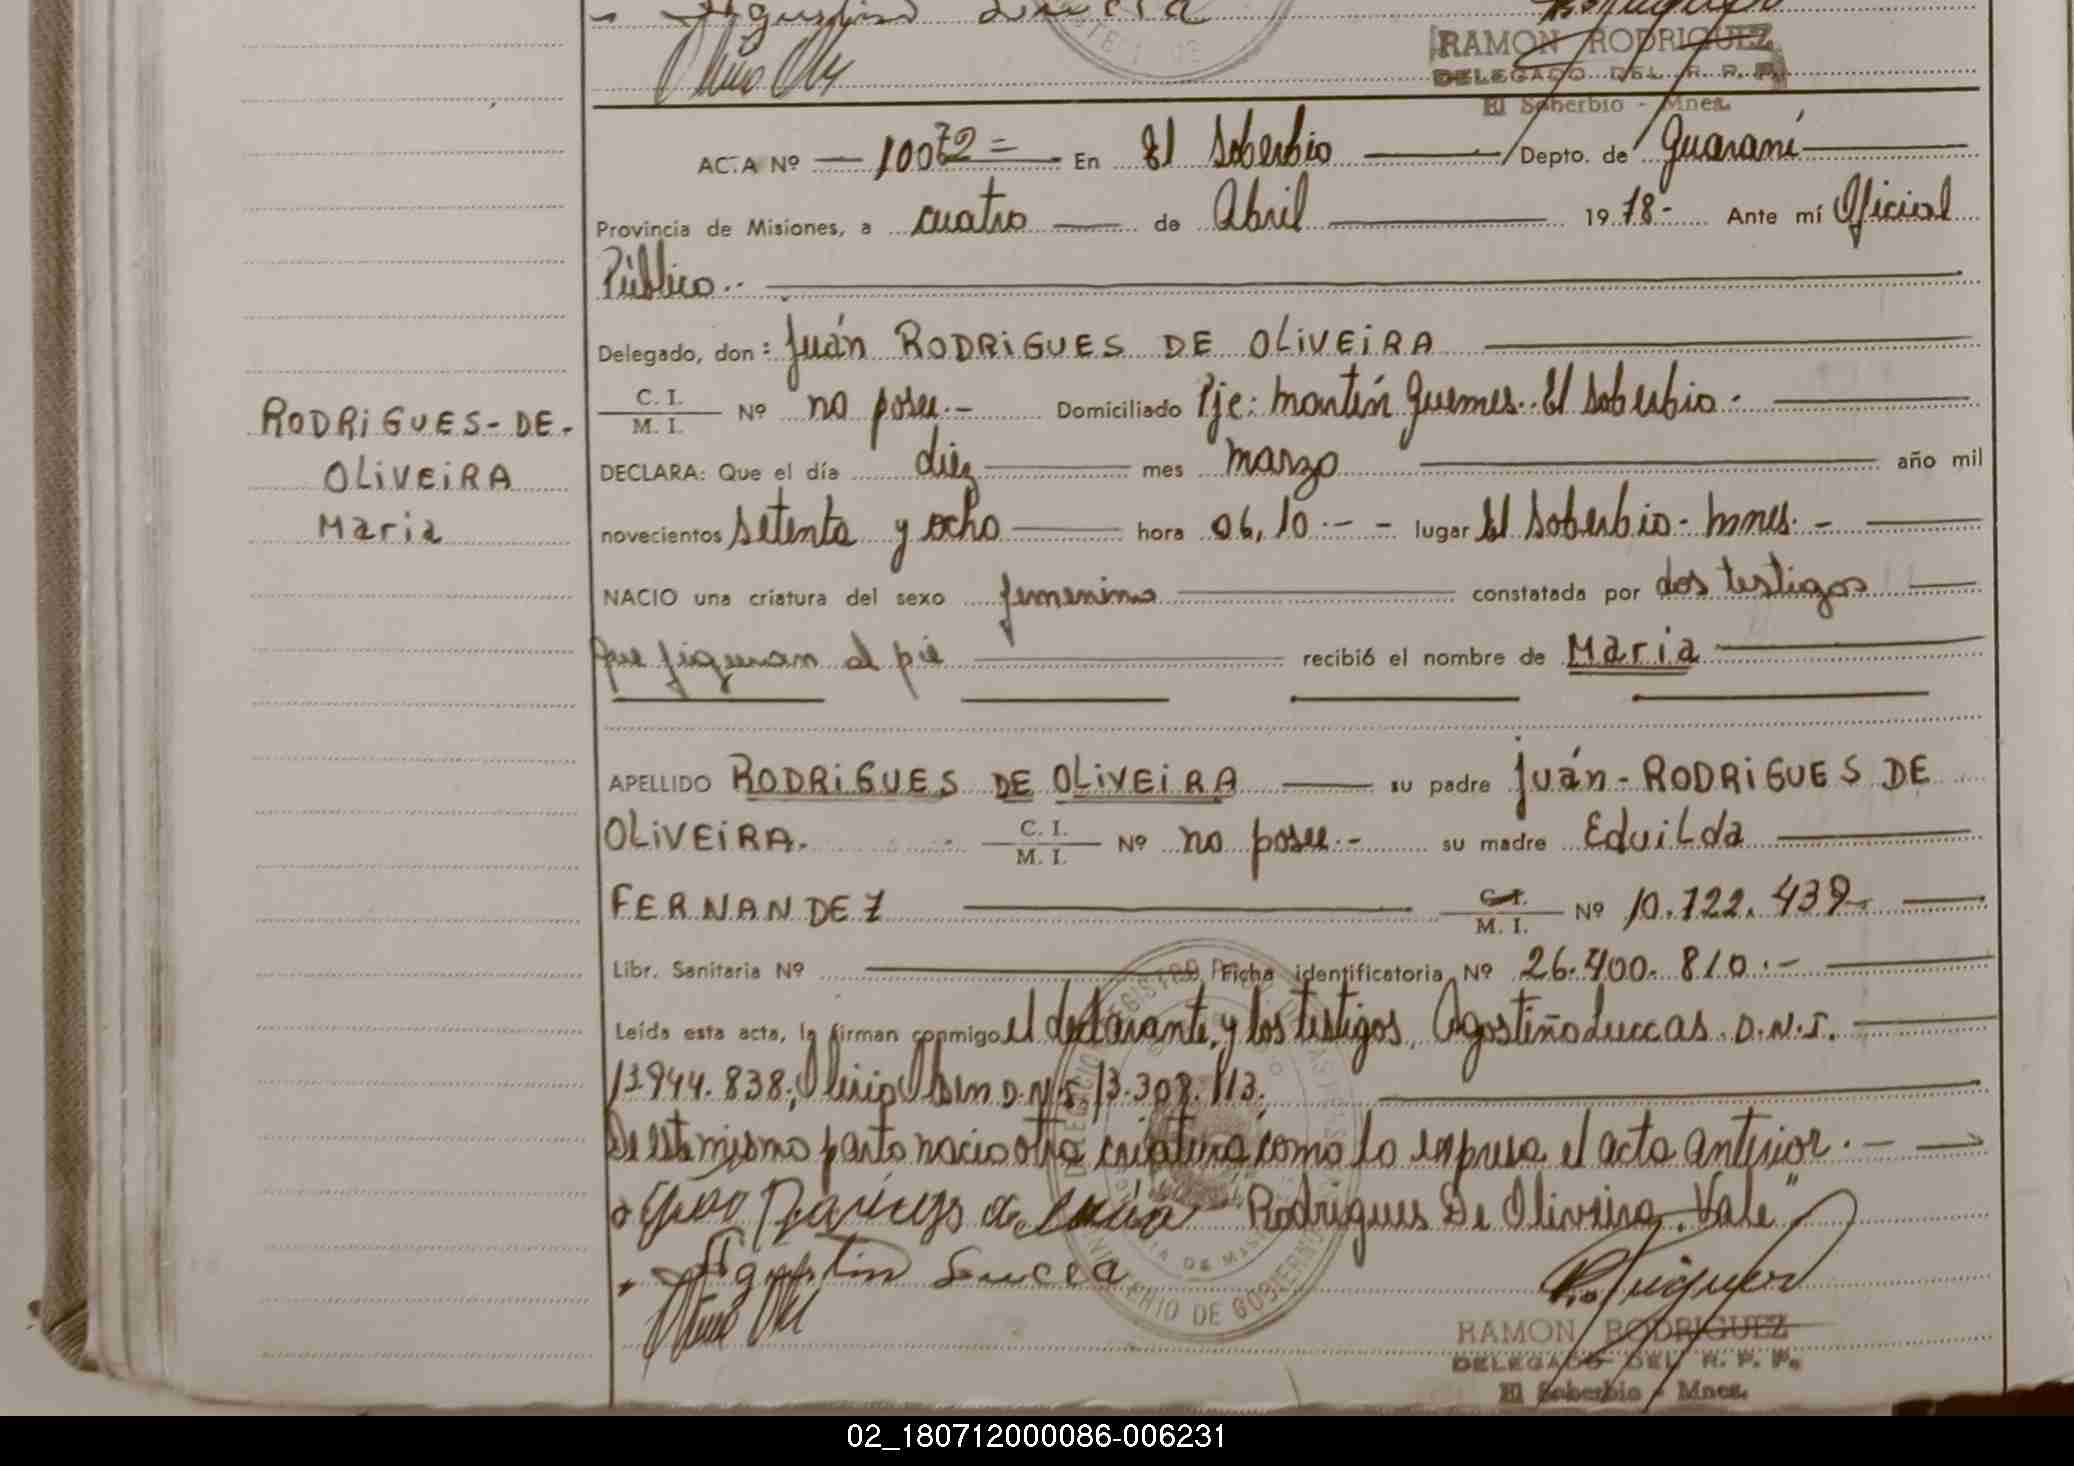 RAMON RODRIGUEZ
DELEGADO DEL R. P. P.
El Soberbio - Mnes.
ACTA Nº 10072 = En El Soberbio Depto. de Guaraní
Provincia de Misiones, a cuatro de Abril 1978.- Ante mí Oficial
Público.-
Delegado, don: Juán RODRIGUES DE OLIVEIRA
C. I.
M. I. Nº no posee.- Domiciliado Pje: Martín Guemes. El Soberbio.-
RODRIGUES-DE-
OLIVEIRA
Maria
DECLARA: Que el día diez mes marzo año mil
novecientos setenta y ocho hora 06,10.- - lugar El Soberbio - Mnes. -
NACIO una criatura del sexo femenino constatada por dos testigos
que figuran al pie recibió el nombre de Maria
APELLIDO RODRIGUES DE OLIVEIRA su padre Juán - RODRIGUES DE
OLIVEIRA. C. I. M. I. Nº no posee.- su madre Eduilda
FERNANDEZ C. I. M. I. Nº 10.722.439-
Libr. Sanitaria Nº Ficha identificatoria Nº 26.400.810.-
Leída esta acta, la firman conmigo el declarante, y los testigos, Agostiño Luccas. D.N.I.
944.838; D.N.I. 13.308.113.
De este mismo parto nacio otra criatura como lo expresa el acta anterior.-
Rodrigues De Oliveira. Vale"
Agustin Lucca
MINISTERIO DE GOBIERNO
RAMON RODRIGUEZ
DELEGADO DEL R. P. P.
El Soberbio - Mnes.
02_180712000086-006231